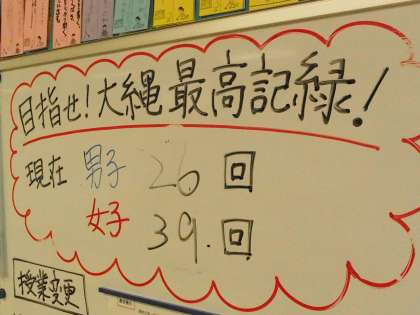 目指せ!大縄最高記録!
現在 男子 26回
女子 39.回
授業変更